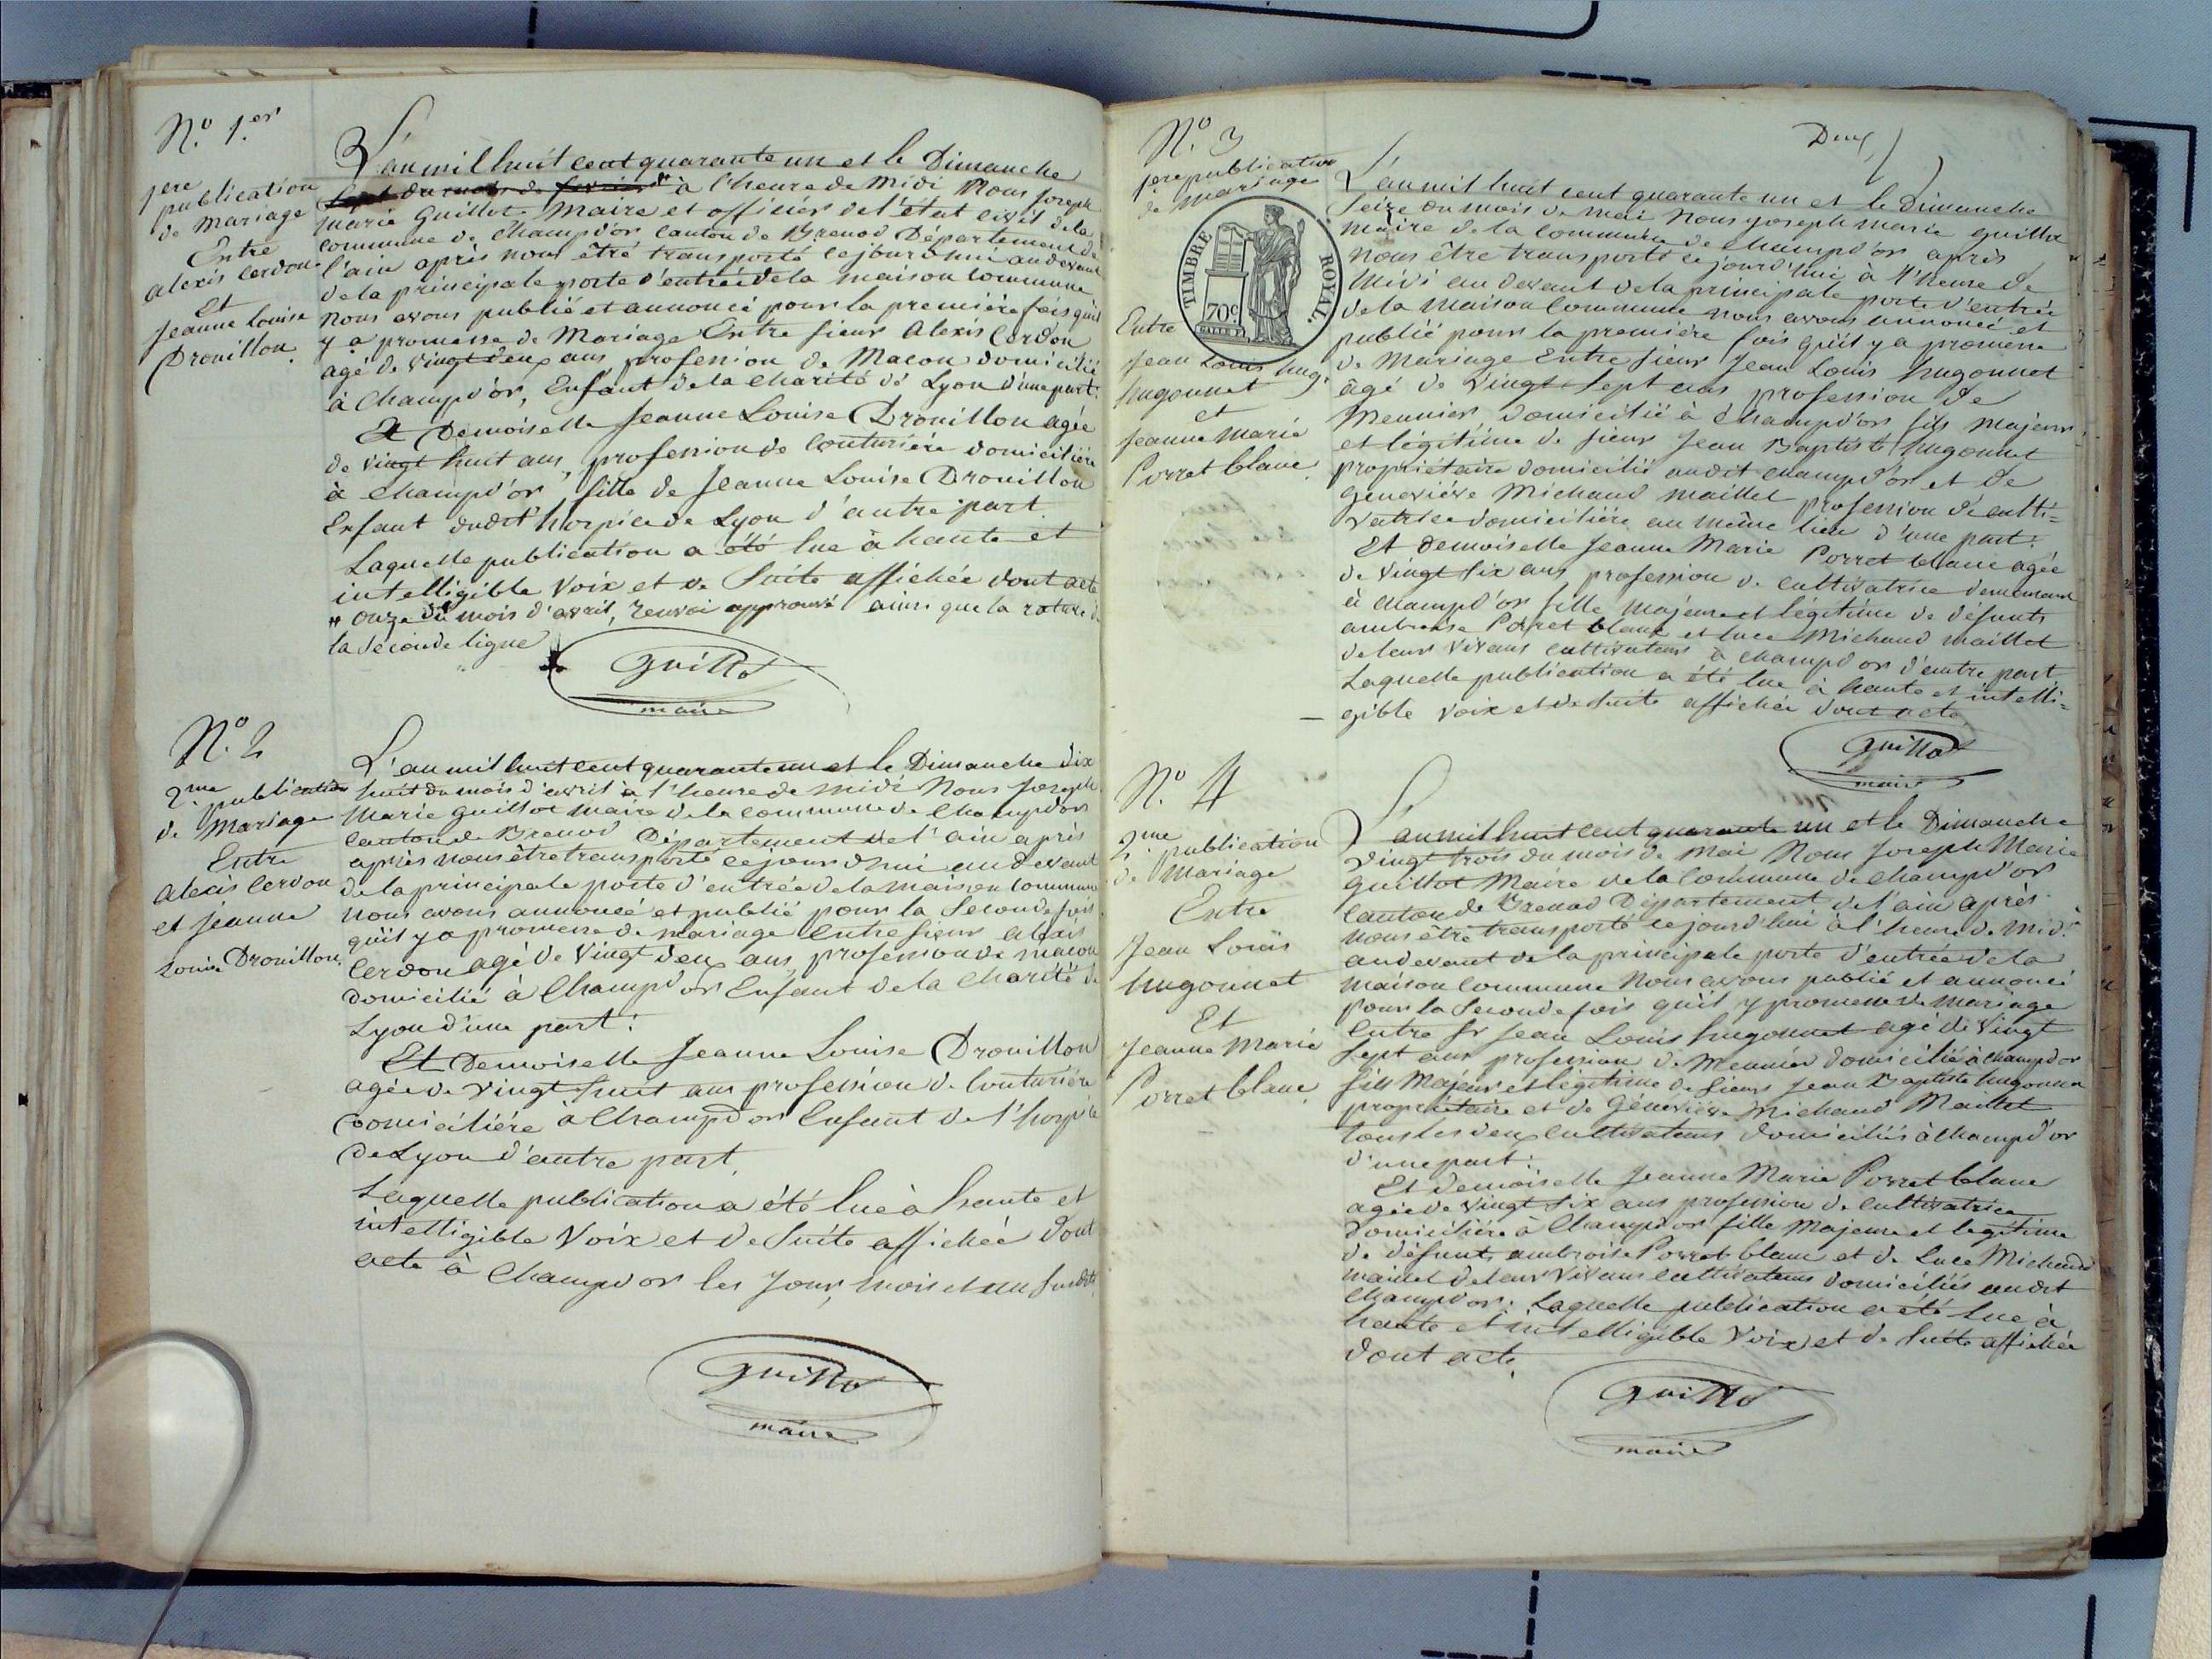 N.º 1.er
1ere
publication
de Mariage
Entre
alexis Cerdon
Et
Jeanne Louise
Drouillon.
L'an mil huit cent quarante un et le Dimanche
Sept du mois de fevrier " à l'heure de Midi Nous Joseph
marie Guillot Maire et officier de l'état civil de la
commune de Champd'or canton de Brenod Département de
l'ain après nous être transporté cejourd'hui au devant
de la principale porte d'entrée de la maison commune
nous avons publié et annoncé pour la première fois qu'il
y a promesse de Mariage Entre sieur Alexis Cerdon
agé de vingt deux ans profession de Macon domicilié
à Champd'or, Enfant de la Charité de Lyon d'une part.
Et Demoiselle Jeanne Louise Drouillon agée
de vingt huit ans, profession de Couturière domicilière
à Champd'or, fille de Jeanne Louise Drouillon
Enfant dudit hospice de Lyon d'autre part.
Laquelle publication a été lue à haute et
intelligible Voix et de Suite affichée dont acte
" onze du mois d'avril, renvoi approuvé ainsi que la rature à
la Seconde ligne
Guillot
maire
N.º 2
2me publication
de Mariage
Entre
Alexis Cerdon
et Jeanne
Louise Drouillon.
L'an mil huit cent quarante un et le Dimanche dix
huit du mois d'avril à l'heure de midi Nous Joseph
Marie Guillot maire de la commune de Champd'or
canton de Brenod Département de l'ain après
après nous être transporté cejourd'hui au devant
de la principale porte d'entrée de la maison commune
nous avons annoncé et publié pour la Seconde fois
qu'il y a promesse de mariage Entre sieur alexis
Cerdon agé de Vingt deux ans profession de macon
domicilié à Champd'or Enfant de la Charité de
Lyon d'une part:
Et Demoiselle Jeanne Louise Drouillon
agée de Vingt huit ans profession de Couturière
Domicilière à Champd'or Enfant de l'hospice
de Lyon d'autre part.
Laquelle publication a été lue à haute et
intelligible Voix et de Suite affichée dont
acte à Champd'or les Jour, mois et an susdits.
Guillot
maire
Deux
N.º 3
1ere publication
de Mariage
TIMBRE ROYAL.
70c
Entre
Jean Louis hug.
hugonnet
et
Jeanne Marie
Porret blanc
L'an mil huit cent quarante un et le Dimanche
Seize du mois de Mai Nous Joseph marie Guillot
Maire de la Commune de Champd'or après
nous être transporté cejourd'hui à l'heure de
Midi au devant de la principale porte d'entrée
de la Maison Commune nous avons annoncé et
publié pour la première fois qu'il y a promesse
de Mariage Entre sieur Jean Louis hugonnet
âgé de Vingt Sept ans profession de
Meunier domicilié à Champd'or fils Majeur
et légitime de sieur Jean Baptiste hugonnet
propriétaire domicilié audit champd'or et de
Geneviève Michaud Maillet profession de culti=
vatrice domicilière au même lieu d'une part:
Et demoiselle Jeanne Marie Porret blanc agée
de Vingt Six ans profession de Cultivatrice demeurant
à Champd'or fille Majeure et légitime de défunts
ambroise Porret blanc et Luce Michaud Maillet
de leur Vivans cultivateurs à Champd'or d'autre part
Laquelle publication a été lue à haute et intelli=
gible Voix et de Suite affichée dont acte
Guillot
maire
N.º 4
2me publication
de Mariage
Entre
Jean Louis
hugonnet
Et
Jeanne Marie
Porret blanc
L'an mil huit cent quarante un et le Dimanche
Vingt trois du mois de Mai Nous Joseph Marie
Guillot Maire de la Commune de Champd'or
Canton de Brenod Département de l'ain après
nous être transporté cejourd'hui à l'heure de midi
au devant de la principale porte d'entrée de la
Maison Commune Nous avons publié et annoncé
pour la Seconde fois qu'il y promesse de Mariage
Entre Sr Jean Louis hugonnet agé de Vingt
Sept ans profession de Meunier domicilié à Champd'or
fils Majeur et légitime de sieur Jean Baptiste hugonnet
propriétaire et de Géneviève Michaud Maillet
tous les deux Cultivateurs domiciliés à Champd'or
d'une part:
Et demoiselle Jeanne Marie Porret blanc
agée de Vingt Six ans profession de Cultivatrice
domicilière à Champd'or fille Majeure et légitime
de défunts ambroise Porret blanc et de Luce Michaud
Maillet de leur Vivans cultivateurs domiciliés audit
Champd'or. Laquelle publication a été lue à
haute et intelligible Voix et de Suite affichée
dont acte.
Guillot
maire